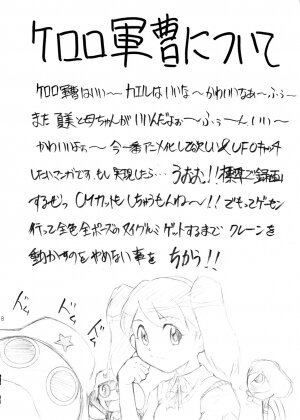 ケロロ軍曹について
ケロロ軍曹はいい〜カエルはいいな〜かわいいなぁ〜ふぅ〜
また夏美と母ちゃんがいいんだよぉ〜ふぅ〜んいい〜
かわいいよぉ〜今一番アニメ化して欲しい&UFOキャッチ
したいマンガです、もし実現したら…うおお!!標準で録画
するぜっCMカットもしちゃうもんね〜!!でもってゲーセン
行って全色全ポーズのヌイグルミゲットするまでクレーンを
動かすのをやめない事を ちかう!!
ドキドキ
ドキドキ
8